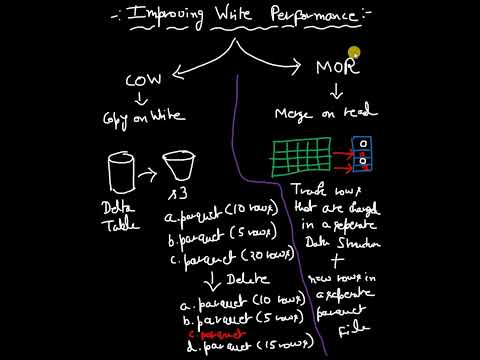 -: Improving Write Performance :-
COW
MOR
Copy on Write
Merge on read
Delta
Table
s3
a.parquet (10 rows)
b.parquet (5 rows)
c.parquet (20 rows)
Delete
a.parquet (10 rows)
b.parquet (5 rows)
c.parquet
d.parquet (15 rows)
0
0
Track rows
that are changed
in a seperate
Data Structure
+
new rows in
a seperate
parquet
file